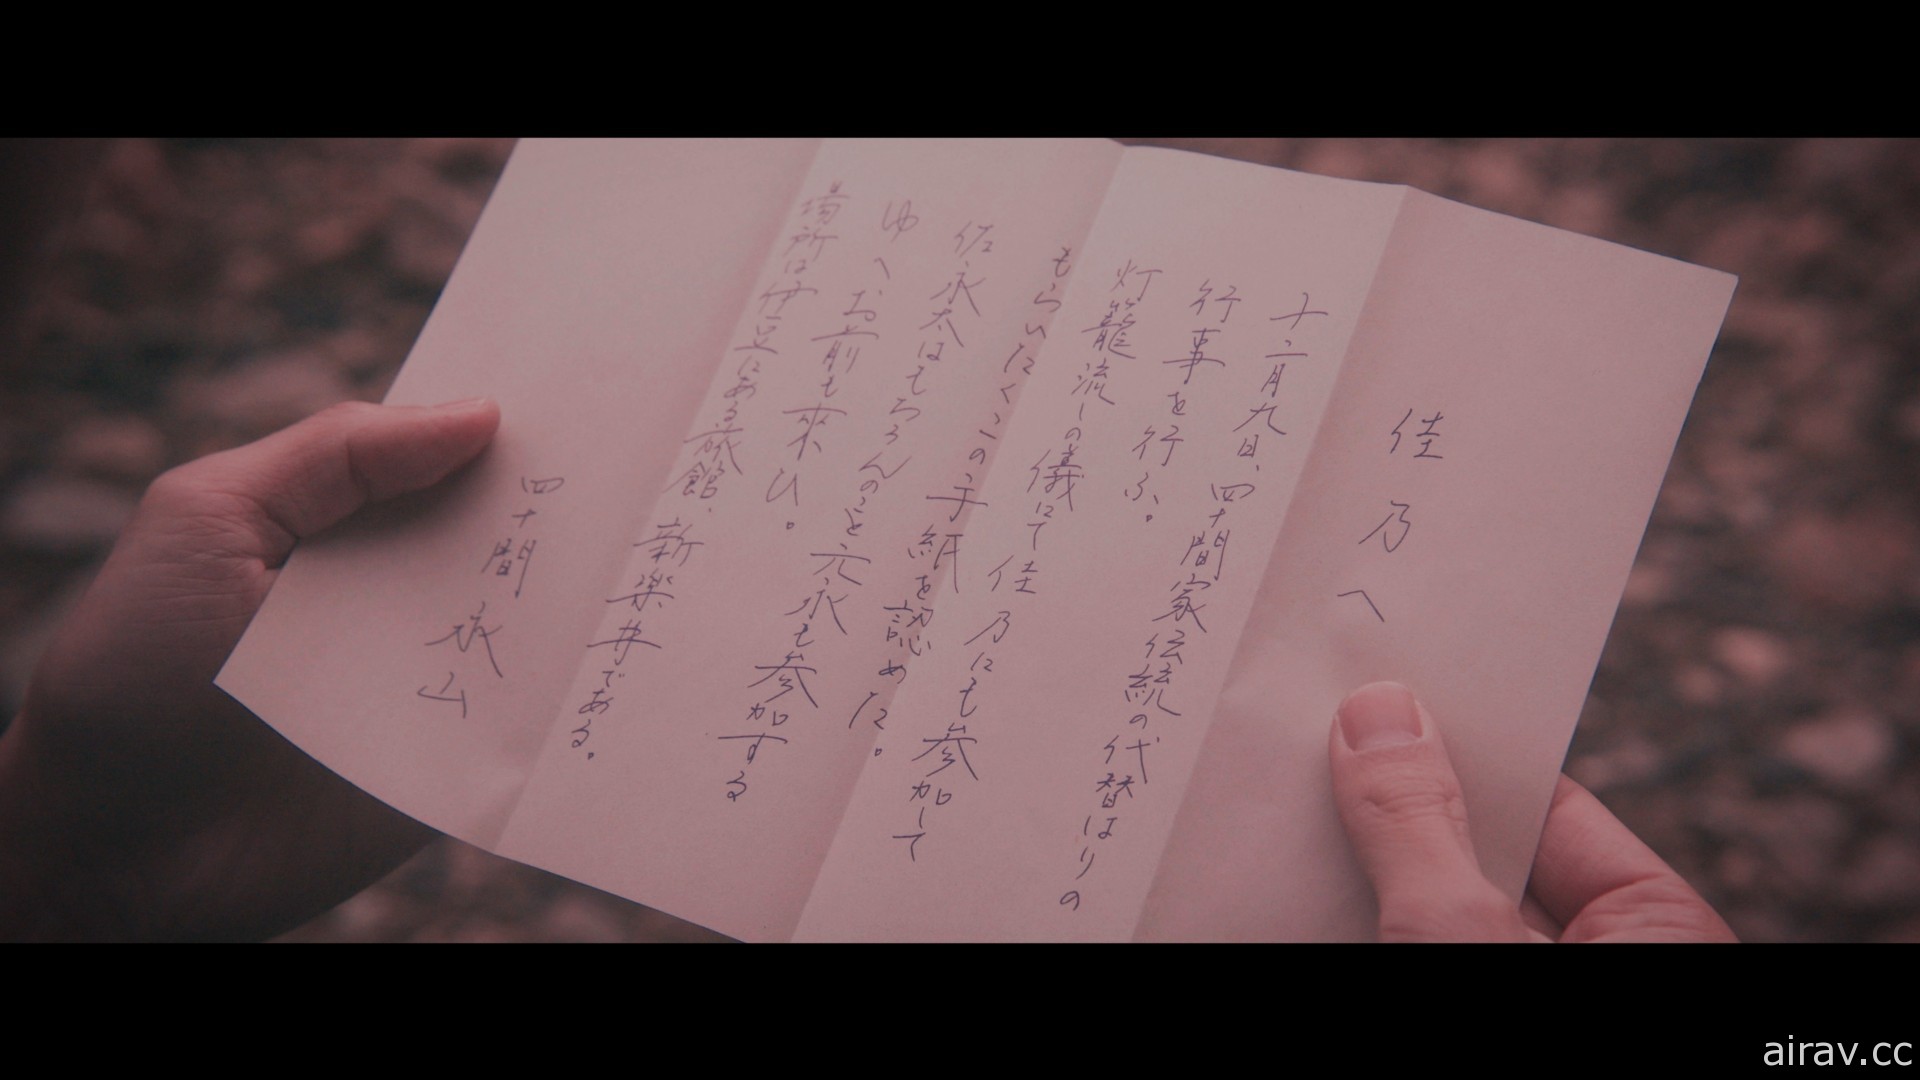 佳乃へ
十二月九日、四十間家伝統の代替はりの
行事を行ふ。
灯籠流しの儀にて佳乃にも参加して
もらいたくこの手紙を認めた。
佐永太はもちろんのこと元永も参加する
ゆへお前も来ひ。
場所は伊豆にある旅館、新楽井である。
四十間 永山
airav.cc